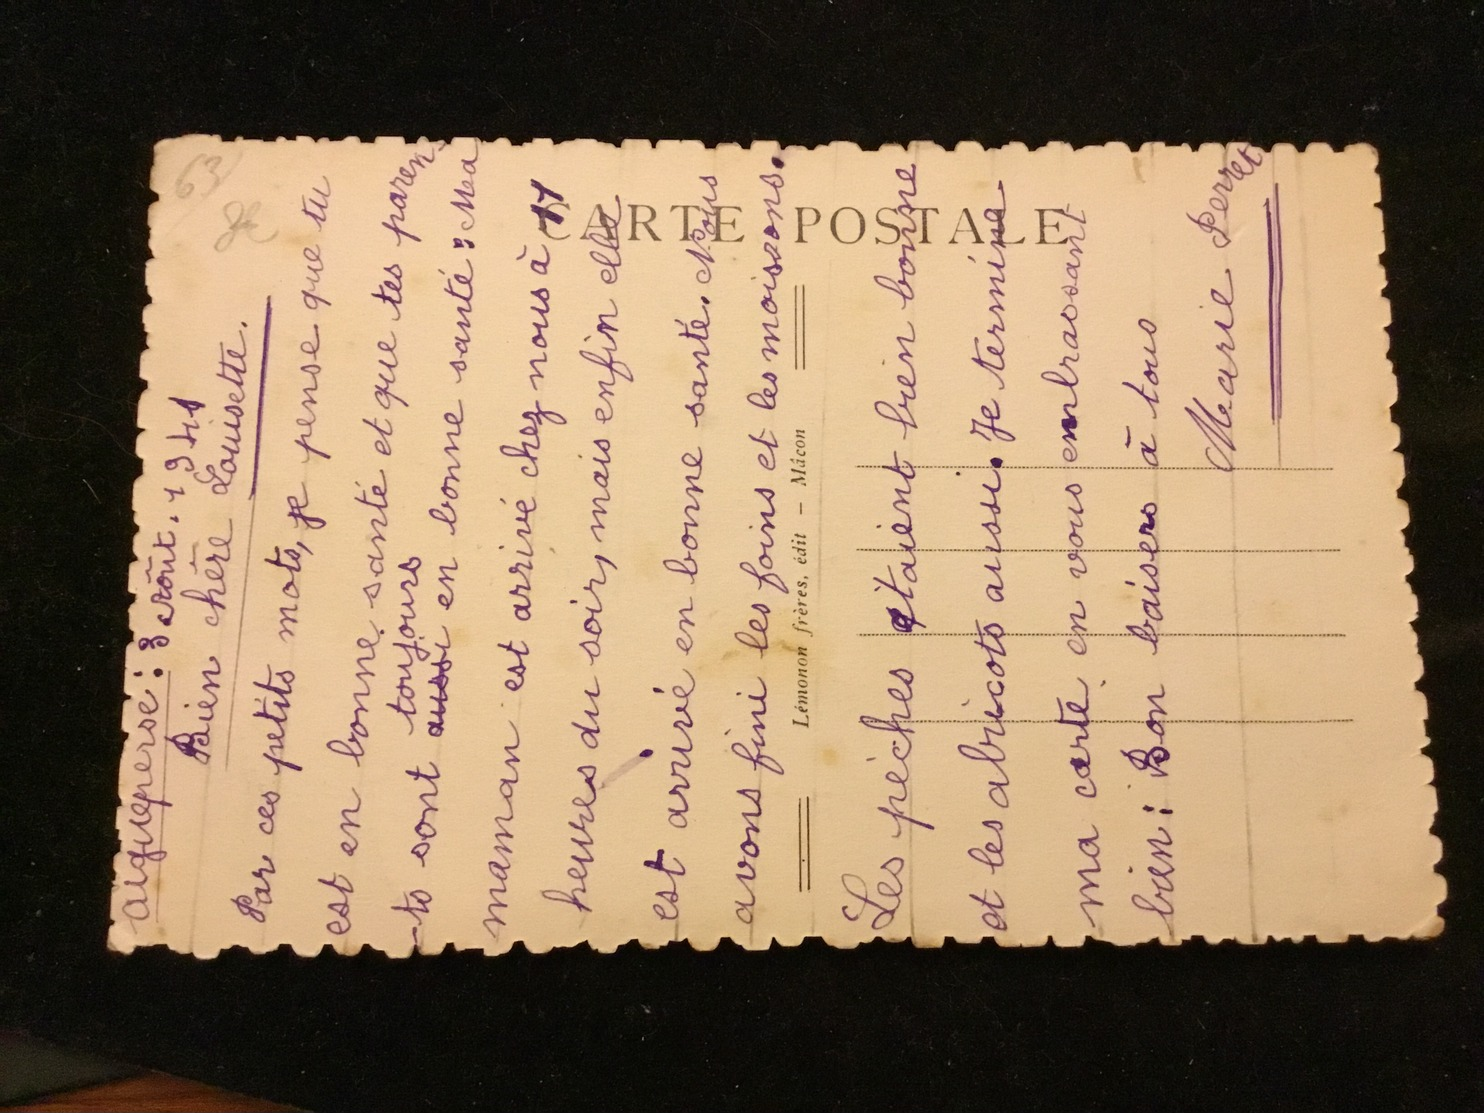 Aigueperse : 3 Août. 1941
Bien chère Louisette.
Par ces petits mots, je pense que tu
est en bonne santé et que tes paren
-ts sont toujours aussi en bonne santé : Ma
maman est arrivé chez nous à 11
heures du soir, mais enfin elle
est arrivé en bonne santé. Nous
avons fini les foins et les moissons.
Les pêches étaient bien bonne
et les abricots aussi. Je termine
ma carte en vous embrassant
bien : Bon baisers à tous
Marie Perret
CARTE POSTALE
Lémonon frères, édit – Mâcon
63